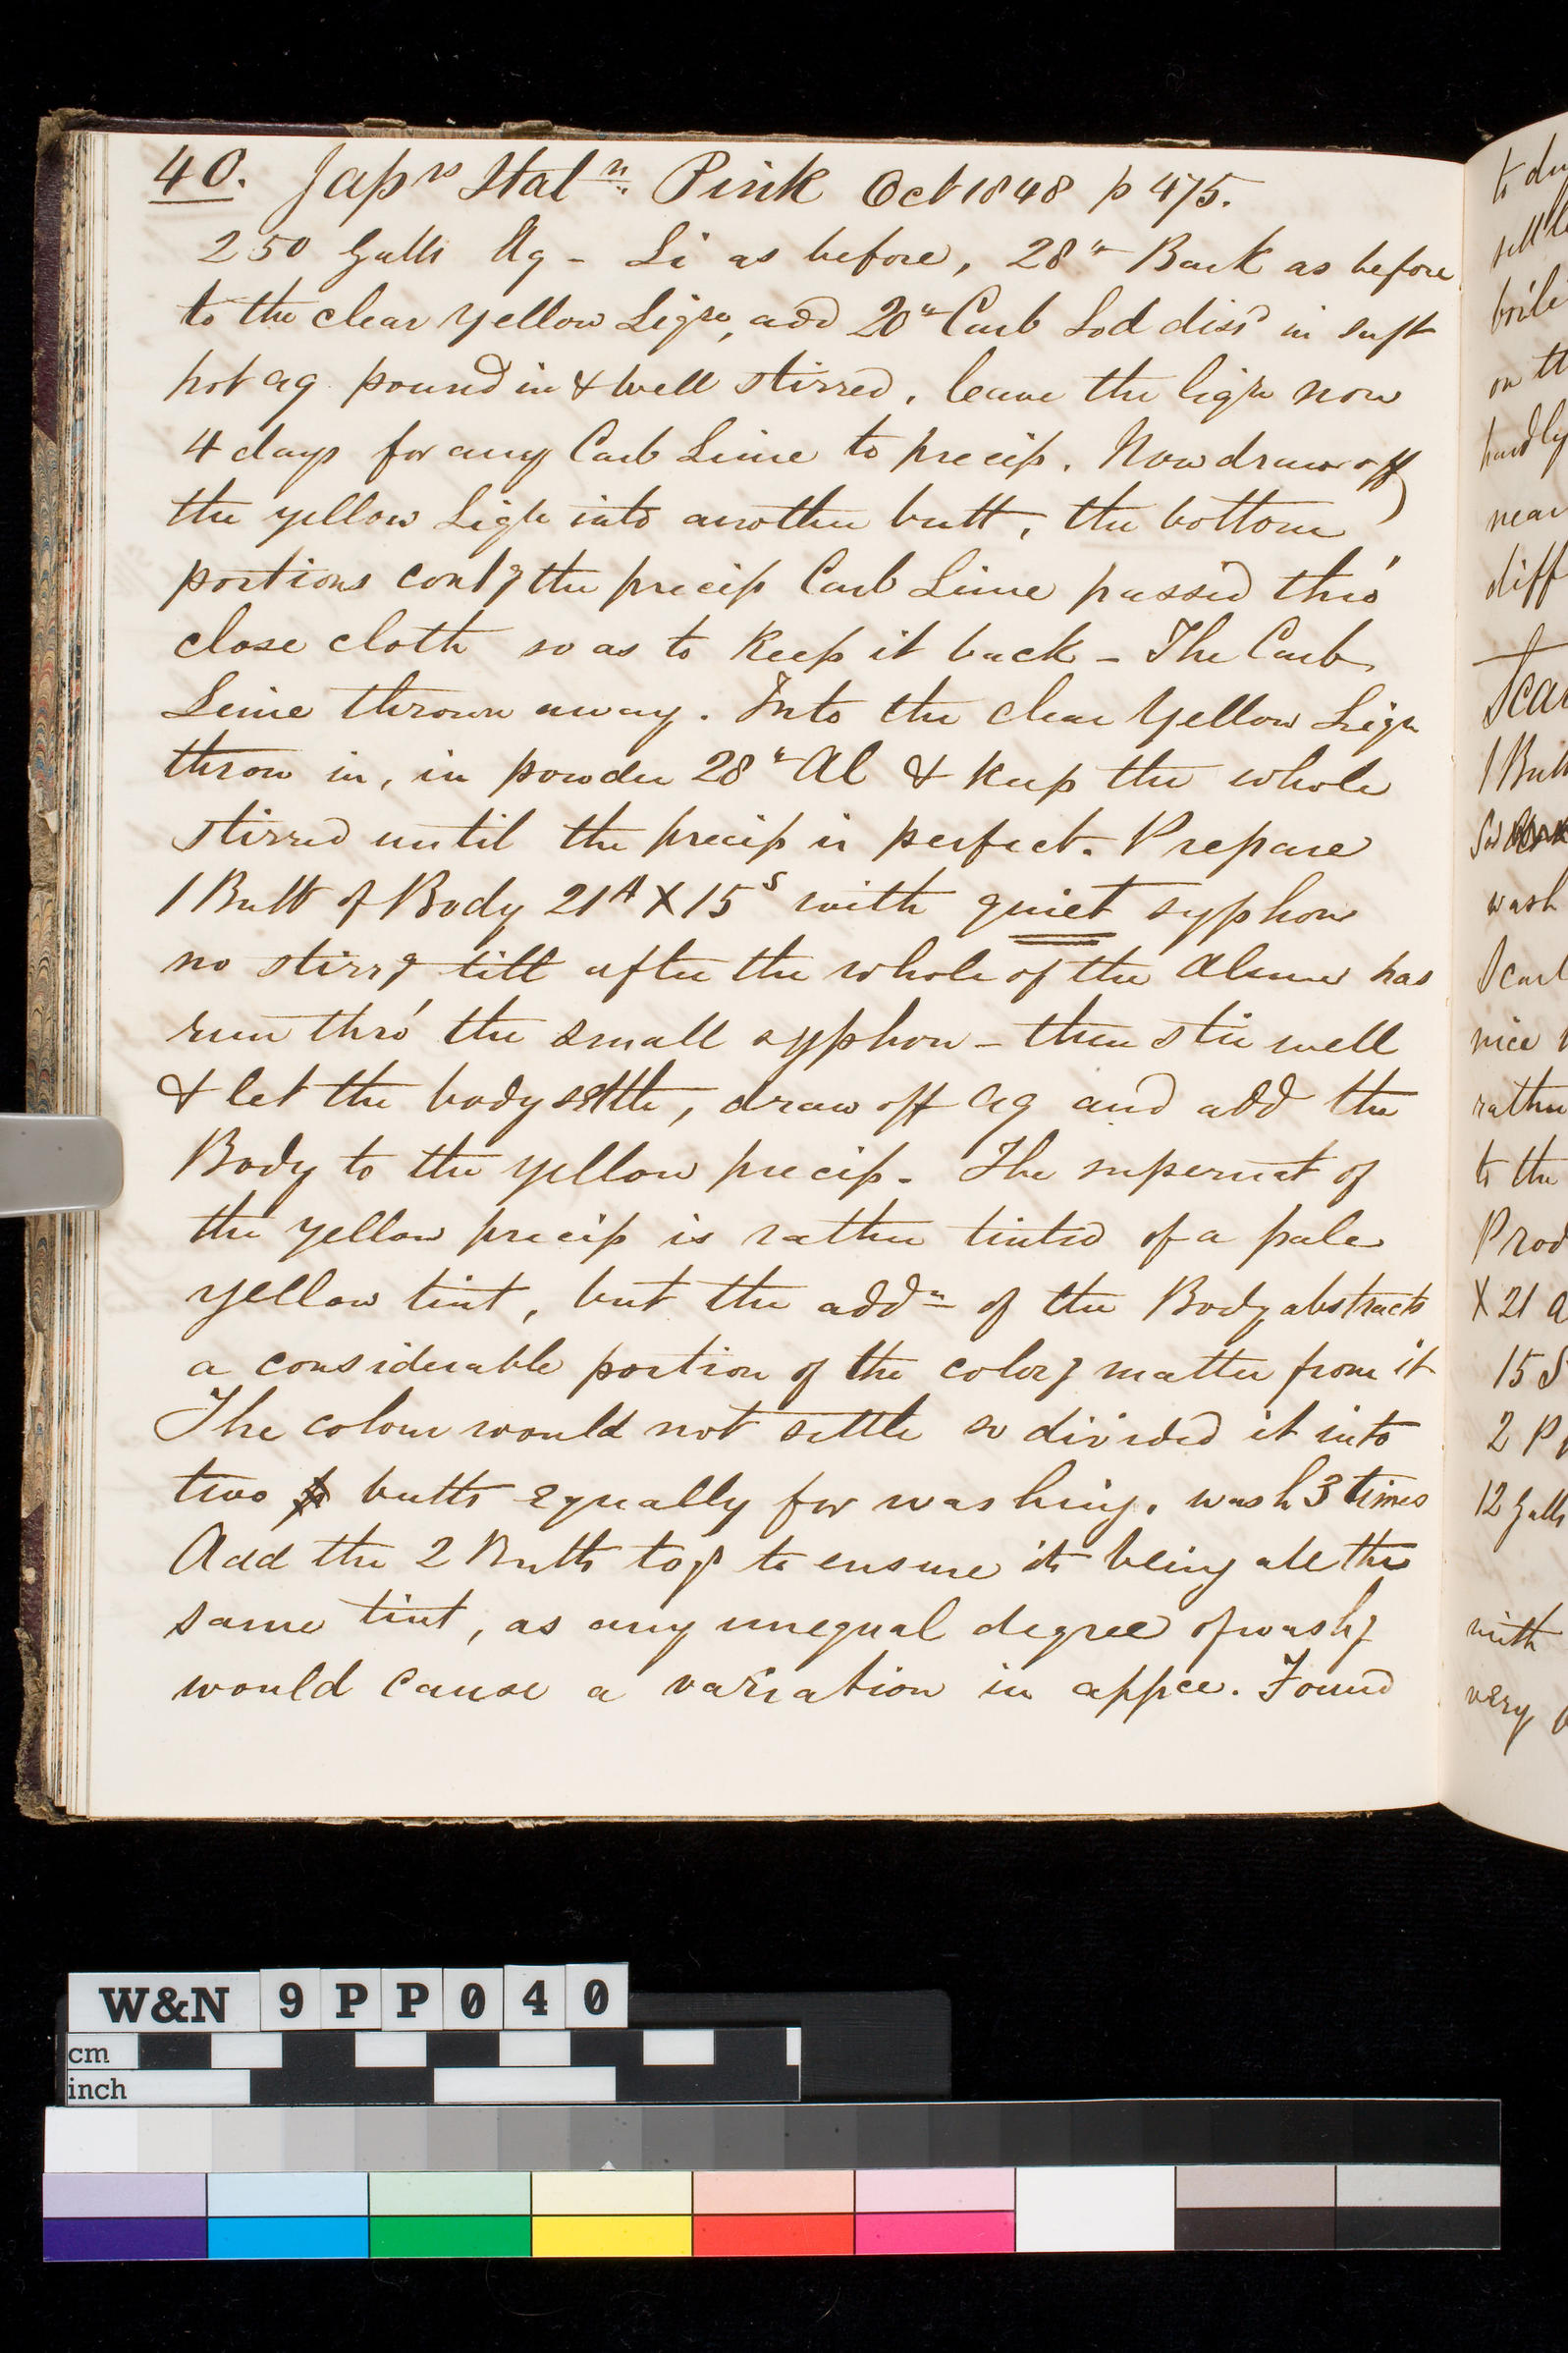 40. Japrs Italn. Pink Oct 1848 p 475.
250 Galls Aq - Li as before, 28 lb Bark as before
to the clear yellow Liqr, add 20 lb Carb Sod dissd in suft
hot aq. pourd in & well stirred. leave the liqr now
4 days for any Carb Lime to precip. Now draw off
the yellow Liqr into another butt, the bottom
portions contg the precip Carb Lime passed thro'
close cloth so as to keep it back - The Carb
Lime thrown away. Into the clear Yellow Liqr
throw in, in powder 28 lb Al & keep the whole
stirred until the precip is perfect. Prepare
1 Butt of Body 21 A X 15 S with quiet syphon
no stirrg till after the whole of the Alum has
run thro' the small syphon - then stir well
& let the body settle, draw off aq and add the
Body to the yellow precip. The supernat of
the yellow precip is rather tinted of a pale
yellow tint, but the addn of the Body abstracts
a considerable portion of the colorg matter from it
The colour would not settle so divided it into
two butts equally for washing. wash 3 times
Add the 2 Butts togr to ensure its being all the
same tint, as any unequal degree of washg
would cause a variation in appce. Found
to dry
boile
on th
hardly
near
diff
Scar
1 Butt
wash
Scarl
nice
rather
to the
Prod
X 21 A
15 S
2 P
12 Galls
with
very
W&N 9PP040
cm
inch